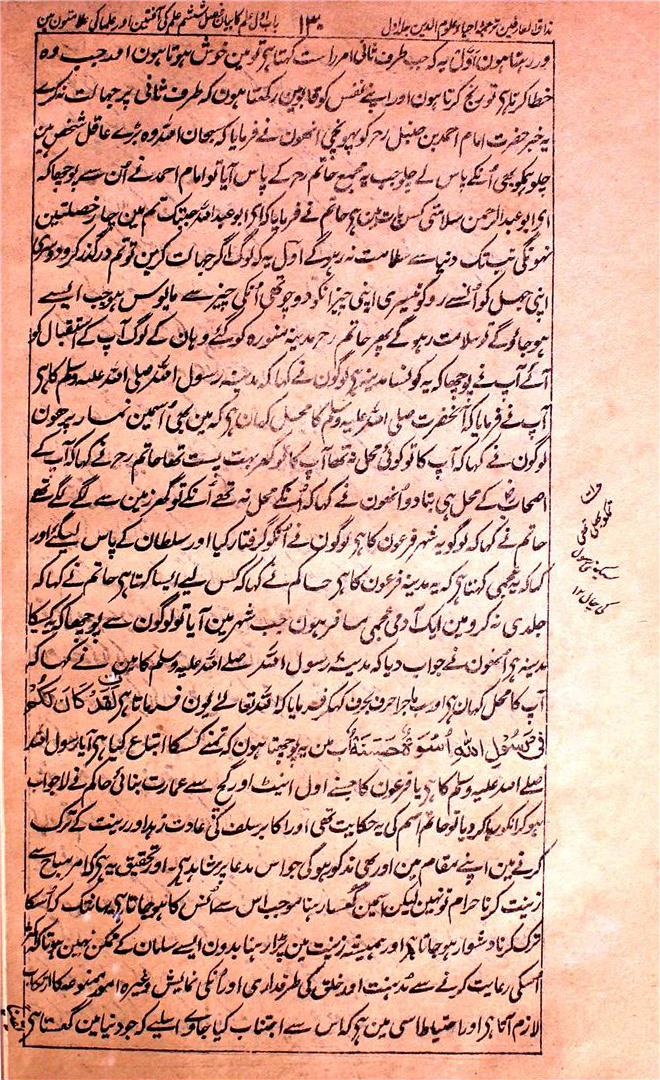 مذاق العارفین ترجمہ احیاء علوم الدین جلد اول
۱۳۰
باب اول علم کا بیان فصل ششم علم کی آفتین اور علما کی علامتون مین
ور رہتا ہون اول یہ کہ جب طرف ثانی امر راست کہتا ہی تو مین خوش ہوتا ہون اور جب وہ
خطا کرتا ہی تو رنج کرتا ہون اور اپنے نفس کو قابو مین رکھتا ہون کہ طرف ثانی پر جہالت نکرے
یہ خبر حضرت امام احمد بن حنبل رح کو پہونچی انھون نے فرمایا کہ سبحان اللہ وہ بڑے عاقل شخص ہین
چلو ہمکو بھی اُنکے پاس لے چلو جب یہ مجمع حاتم رح کے پاس آیا تو امام احمد نے اُن سے پوچھا کہ
ای ابو عبد الرحمن سلامتی کس بات مین ہی حاتم نے فرمایا کہ ای ابو عبد اللہ جبتک تم مین چار خصلتین
نہونگی تب تک دنیا سے سلامت نہ رہو گے اول یہ کہ لوگ اگر جہالت کرین تو تم درگذر کرو دوسری
اپنی جہل کو اُنسے روکو تیسری اپنی چیز انکو دو چوتھی اُنکی چیز سے مایوس ہو جب ایسے
ہو جاؤ گے تو سلامت رہو گے پھر حاتم رح مدینہ منورہ کو گئے وہان کے لوگ آپ کے استقبال کو
آئے آپ نے پوچھا کہ یہ کونسا مدینہ ہی لوگون نے کہا کہ مدینہ رسول اللہ صلی اللہ علیہ وسلم کا ہی
آپ نے فرمایا کہ آنحضرت صلی اللہ علیہ وسلم کا محل کہان ہی کہ مین بھی اُسمین نماز پڑھون
لوگون نے کہا کہ آپ کا تو کوئی محل نہ تھا آپ کا تو گھر بہت پست تھا حاتم رح نے کہا کہ آپ کے
اصحاب رض کے محل ہی بتا دو اُنھون نے کہا کہ اُنکے محل نہ تھے اُنکے تو گھر زمین سے لگے لگے تھے
حاتم نے کہا کہ لوگو یہ شہر فرعون کا ہی لوگون نے اُنکو گرفتار کیا اور سلطان کے پاس لیگئے اور
کہا کہ یہ عجمی کہتا ہی کہ یہ مدینہ فرعون کا ہی حاکم نے کہا کہ کس لیے ایسا کہتا ہی حاتم نے کہا کہ
جلدی نہ کرو مین ایک آدمی عجمی مسافر ہون جب شہر مین آیا تو لوگون سے پوچھا کہ یہ کسکا
مدینہ ہی اُنھون نے جواب دیا کہ مدینہ رسول اللہ صلے اللہ علیہ وسلم کا مین نے کہا کہ
آپ کا محل کہان ہی اور سب ماجرا حرف بحرف کہکر فرمایا کہ اللہ تعالے یون فرماتا ہی لَقَدْ كَانَ لَكُمْ
فِي رَسُولِ اللهِ أُسْوَةٌ حَسَنَةٌ اب مین یہ پوچھتا ہون کہ تمنے کسکا اتباع کیا ہی آیا رسول اللہ
صلے اللہ علیہ وسلم کا ہی یا فرعون کا جسنے اول اینٹ اور گچ سے عمارت بنائی حاکم نے لاجواب
ہو کر انکو رہا کر دیا تو حاتم اصم کی یہ حکایت تھی اور اکابر سلف کی عادت زہد اور زینت کے ترک
کرنے مین اپنے مقام مین اور بھی مذکور ہوگی جو اس مدعا پر شاہد ہی۔ اور تحقیق یہ ہی کہ امر مباح سے
زینت کرنا حرام تو نہین لیکن اسمین گھسا رہنا موجب اس سے اُنس کا ہو جاتا ہی یہانتک کہ اُسکا
ترک کرنا دشوار ہو جاتا ہی اور ہمیشہ زینت مین پڑا رہنا بدون ایسے سامان کے ممکن نہین ہوتا کہ اکثر
اُسکی رعایت کرنے سے مداہنت اور خلق کی طرفداری اور اُنکی نمایش وغیرہ امور ممنوعہ کا ارتکاب
لازم آتا ہی اور احتیاط اسی مین ہی کہ اس سے اجتناب کیا جاوے اسلیے کہ جو دنیا مین گھستا ہی
تمکو بھلی تھی
سیکھنی رسول
کی چال ۱۲